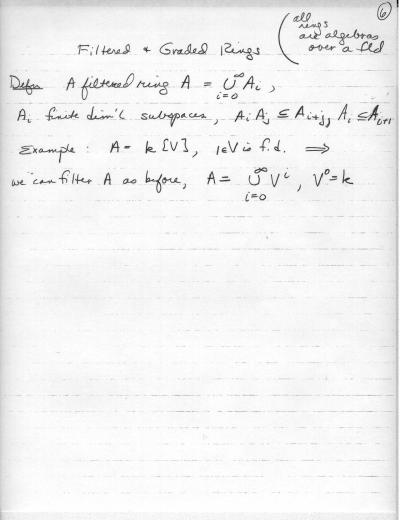 ⑥
(all rings are algebras over a fld
Filtered + Graded Rings
Defn A filtered ring A = ∪_{i=0}^∞ A_i ,
A_i finite dim'l subspaces, A_i A_j ⊆ A_{i+j}, A_i ⊆ A_{i+1}
Example: A = k[V], 1∈V is f.d. ⟹
we can filter A as before, A = ∪_{i=0}^∞ V^i , V^0 = k